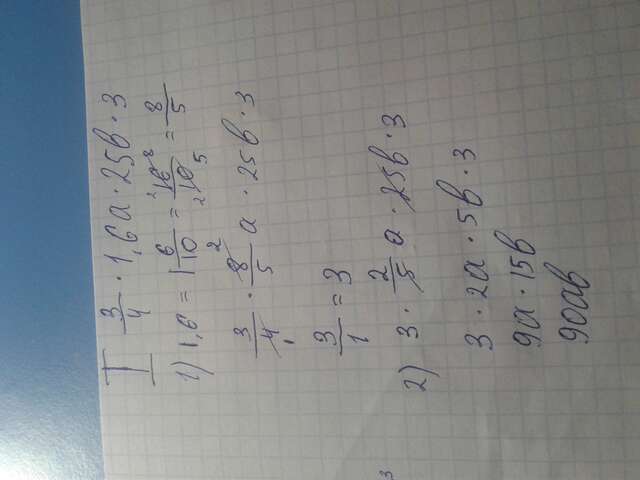 I 3/4 · 1,6a · 25b · 3
1) 1,6 = 1 6/10 = 16/10 = 8/5
3/4 · 8/5 a · 25b · 3
3/1 = 3
2) 3 · 2/5 a · 25b · 3
3 · 2a · 5b · 3
9a · 15b
90ab